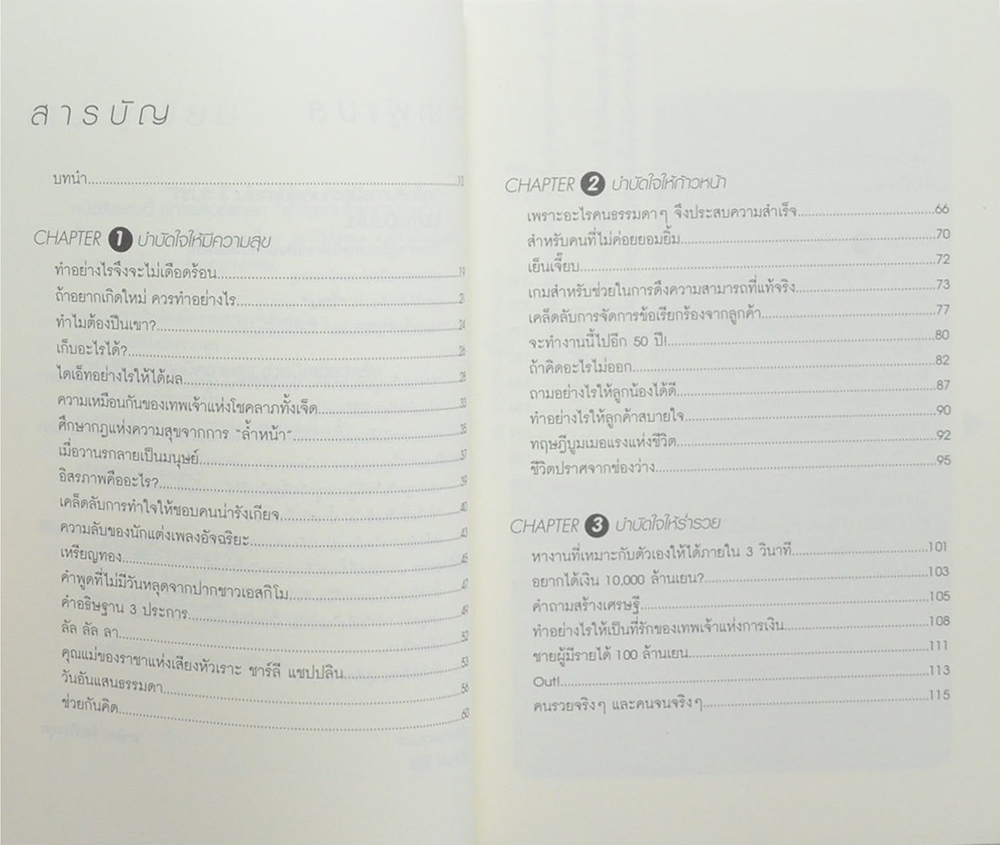 สารบัญ
บทนำ 10
CHAPTER 1 บำบัดใจให้มีความสุข
ทำอย่างไรจึงจะไม่เดือดร้อน 19
ถ้าอยากเกิดใหม่ ควรทำอย่างไร
ทำไมต้องปีนเขา? 24
เก็บอะไรได้? 26
ไดเอ็ทอย่างไรให้ได้ผล 28
ความเหมือนกันของเทพเจ้าแห่งโชคลาภทั้งเจ็ด
ศึกษากฎแห่งความสุขจากการ "ล้ำหน้า" 35
เมื่อวานรกลายเป็นมนุษย์ 37
อิสรภาพคืออะไร? 39
เคล็ดลับการทำใจให้ชอบคนน่ารังเกียจ 40
ความลับของนักแต่งเพลงอัจฉริยะ 43
เหรียญทอง 45
คำพูดที่ไม่มีวันหลุดจากปากชาวเอสกิโม 47
คำอธิษฐาน 3 ประการ 49
ลัล ลัล ลา 52
คุณแม่ของราชาแห่งเสียงหัวเราะ ชาร์ลี แชปปลิน 53
วันอันแสนธรรมดา 56
ช่วยกันคิด 60
CHAPTER 2 บำบัดใจให้ก้าวหน้า
เพราะอะไรคนธรรมดาๆ จึงประสบความสำเร็จ 66
สำหรับคนที่ไม่ค่อยยอมยิ้ม 70
เย็นเจี๊ยบ 72
เกมสำหรับช่วยในการดึงความสามารถที่แท้จริง 73
เคล็ดลับการจัดการข้อเรียกร้องจากลูกค้า 77
จะทำงานนี้ไปอีก 50 ปี! 80
ถ้าคิดอะไรไม่ออก 82
ถามอย่างไรให้ลูกน้องได้ดี 87
ทำอย่างไรให้ลูกค้าสบายใจ 90
ทฤษฎีบูมเมอแรงแห่งชีวิต 92
ชีวิตปราศจากช่องว่าง 95
CHAPTER 3 บำบัดใจให้ร่ำรวย
หางานที่เหมาะกับตัวเองให้ได้ภายใน 3 วินาที 101
อยากได้เงิน 10,000 ล้านเยน? 103
คำถามสร้างเศรษฐี 105
ทำอย่างไรให้เป็นที่รักของเทพเจ้าแห่งการเงิน 108
ชายผู้มีรายได้ 100 ล้านเยน 111
Out! 113
คนรวยจริงๆ และคนจนจริงๆ 115